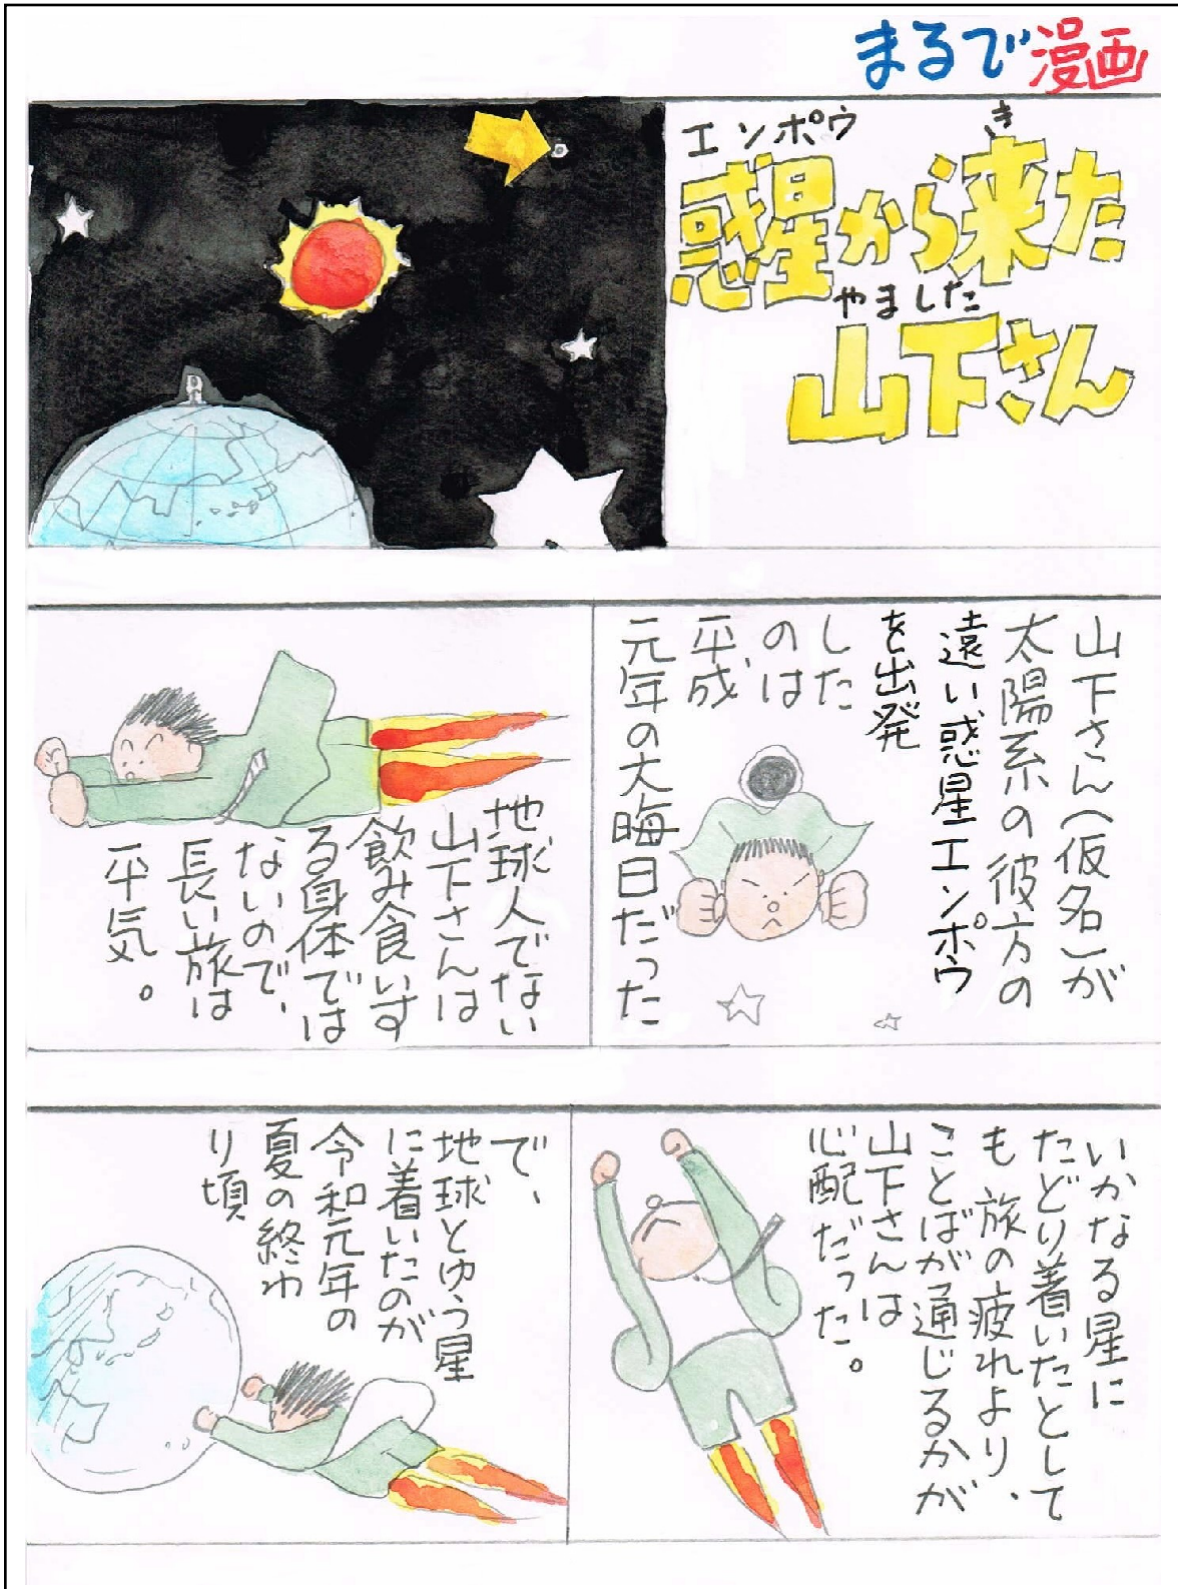 まるで漫画
エンポウ
惑星から来た
き
やました
山下さん
山下さん(仮名)が
太陽系の彼方の
遠い惑星エンポウ
を出発
した
のは
平成
元年の大晦日だった
地球人でない
山下さんは
飲み食いす
る身体では
ないので、
長い旅は
平気。
いかなる星に
たどり着いたとして
も旅の疲れより、
ことばが通じるかが
山下さんは
心配だった。
で、
地球とゆう星
に着いたのが
令和元年の
夏の終わ
り頃